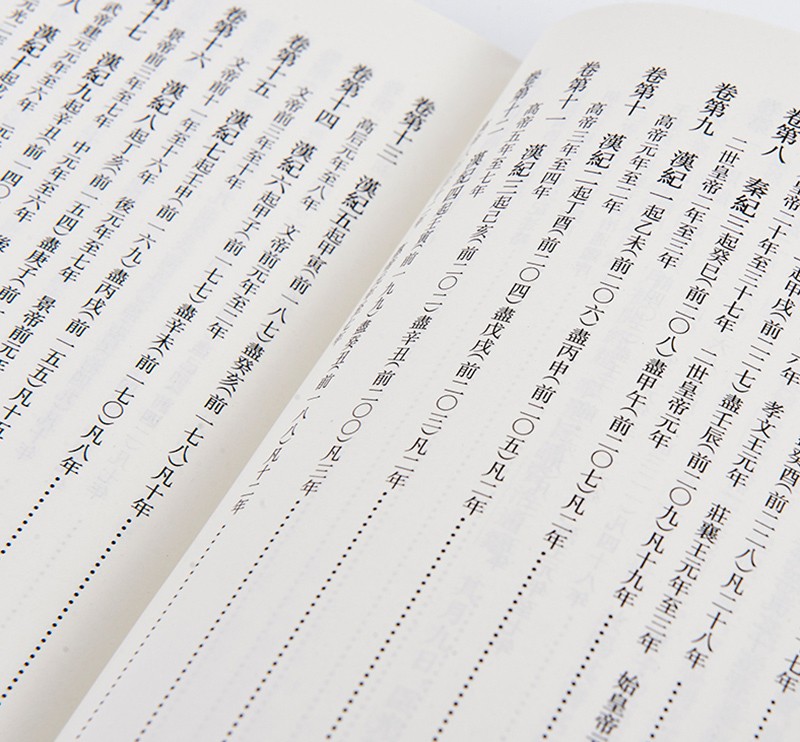 癸酉(前二二八)凡二十八年
六年 孝文王元年 莊襄王元年至三年 始皇帝
起甲戌(前二二七)盡壬辰(前二〇九)凡十九年
皇帝二十年至三十七年 二世皇帝元年
卷第八 秦紀三起癸巳(前二〇八)盡甲午(前二〇七)凡二年
二世皇帝二年至三年
卷第九 漢紀一起乙未(前二〇六)盡丙申(前二〇五)凡二年
高帝元年至二年
卷第十 漢紀二起丁酉(前二〇四)盡戊戌(前二〇三)凡二年
高帝三年至四年
卷第十一 漢紀三起己亥(前二〇二)盡辛丑(前二〇〇)凡三年
高帝五年至七年
卷第十二 漢紀四起壬寅(前一九九)盡癸丑(前一八八)凡十二年
卷第十三 漢紀五起甲寅(前一八七)盡癸亥(前一七八)凡十年
高后元年至八年 文帝前元年至二年
卷第十四 漢紀六起甲子(前一七七)盡辛未(前一七〇)凡八年
文帝前三年至十年
卷第十五 漢紀七起壬申(前一六九)盡丙戌(前一五五)凡十五
文帝前十一年至十六年 後元年至七年 景帝前元年
卷第十六 漢紀八起丁亥(前一五四)盡庚子(前一
景帝前三年至七年 中元年至六年 後
十七 漢紀九起辛丑(前一四〇
武帝建元元年至六年 元
八 漢紀十起